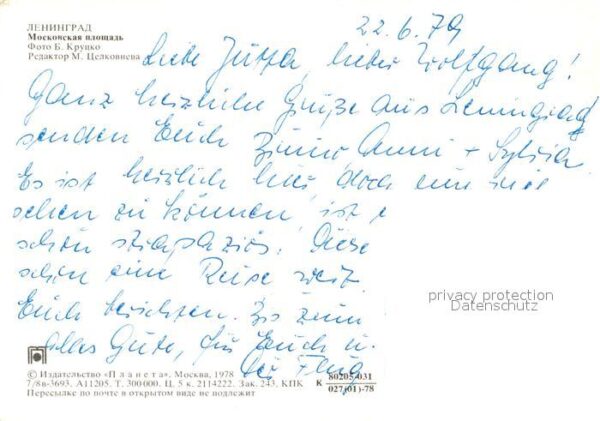 ЛЕНИНГРАД
Московская площадь
Фото Б. Круцко
Редактор М. Целковнева
22.6.79
Liebe Jutta, lieber Wolfgang!
Ganz herzliche Grüße aus Leningrad
senden Euch Anni + Sylvia.
Es ist herrlich hier, doch um viel
sehen zu können, ist
schon strapaziös. Diese
schon eine Reise wert.
Euch berichten. Bis zum
alles Gute, für Euch u.
der Flug
privacy protection
Datenschutz
© Издательство «Планета». Москва, 1978
7/8в-3693. А11205. Т. 300 000. Ц. 5 к. 2114222. Зак. 243. КПК
К 80205-031
027(01)-78
Пересылке по почте в открытом виде не подлежит